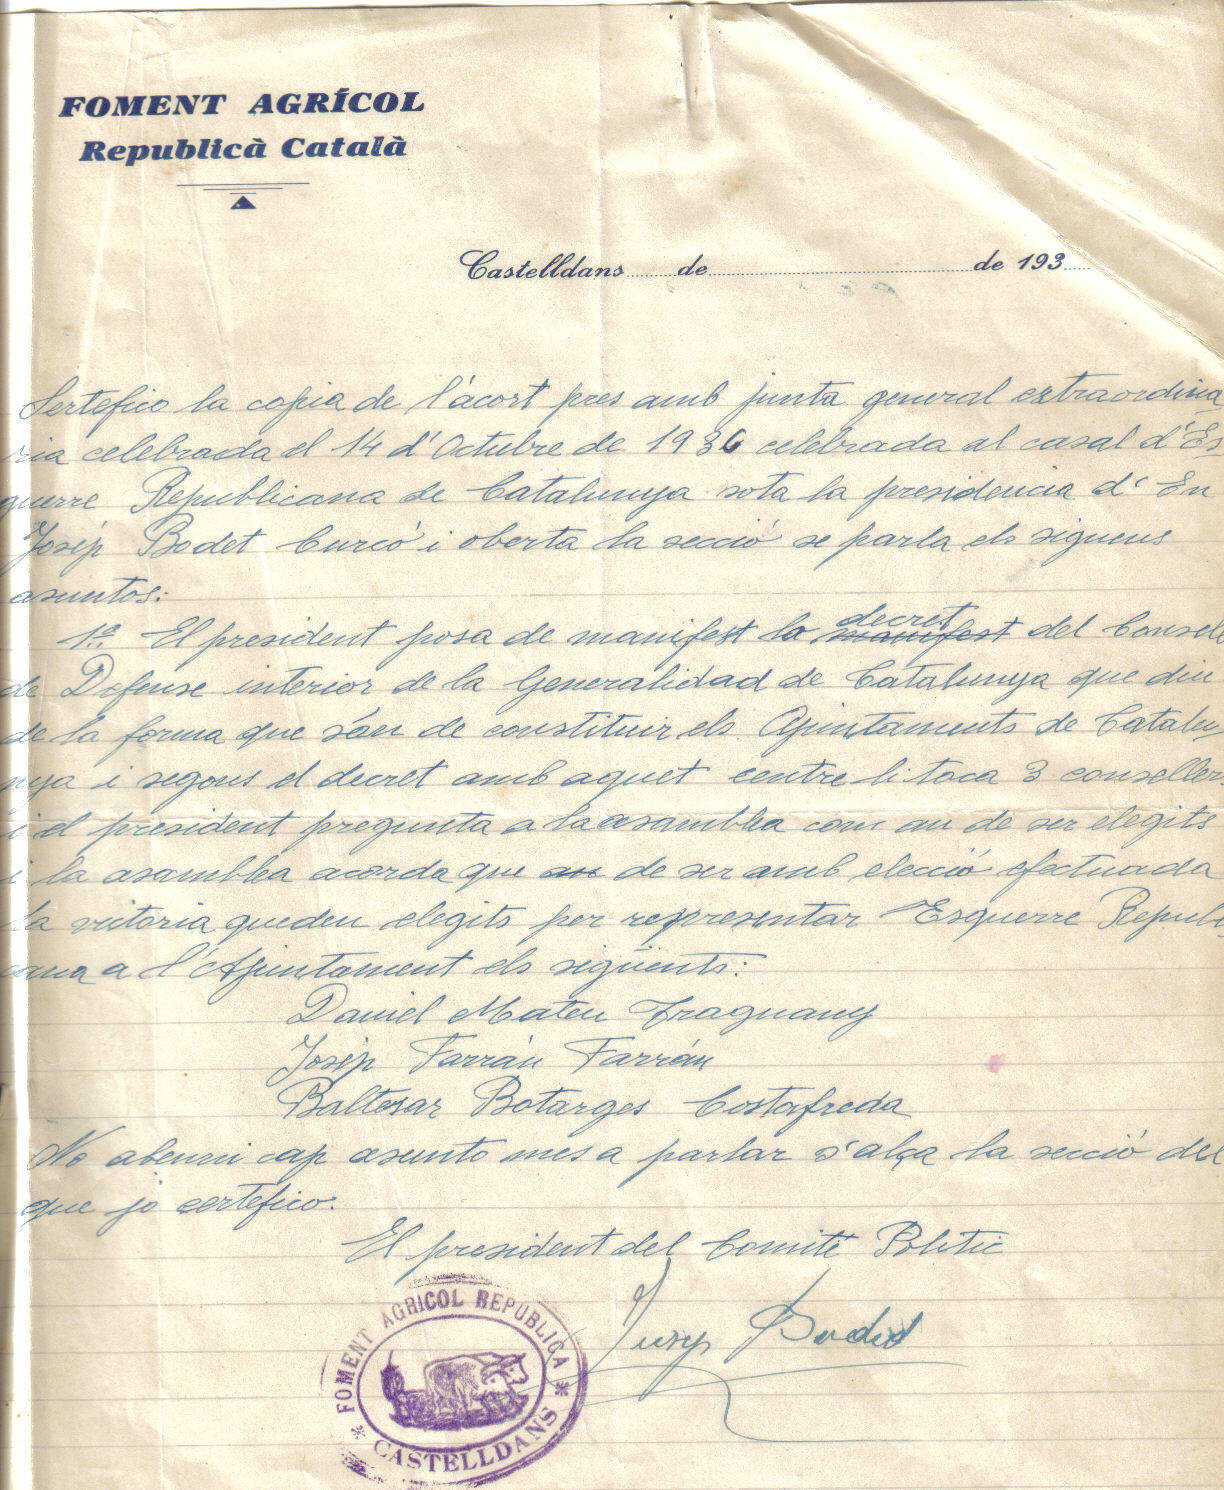 FOMENT AGRÍCOL
Republicà Català
Castelldans de de 193
Sertefico la copia de l'acort pres amb junta general extraordina
ria celebrada el 14 d'Octubre de 1936 celebrada al casal d'Es
querre Republicana de Catalunya sota la presidencia d'En
Josép Bodet Curcó i oberta la secció se parla els siguens
asuntos:
1º El president posa de manifest lo decret manifest del Consell
de Defense interior de la Generalidad de Catalunya que diu
de la forma que s'án de constituir els Ajuntaments de Catalu-
nya i segons el decret amb aquet centre li toca 3 consellers
i el president pregunta a la asamblea com an de ser elegits
i la asamblea acorda que an de ser amb elecció efectuada
la vutoria queden elegits per representar Esquerre Republi-
cana a l'Ajuntament els sigüents:
Daniel Mateu Fraguany
Josép Farrán Farrán
Baltesar Botarges Costafreda
No abenni cap asunto mes a parlar s'alça la secció del
que jo certefico:
El president del Comité Politic
Jusep Budet
FOMENT AGRICOL REPUBLICA
CASTELLDANS